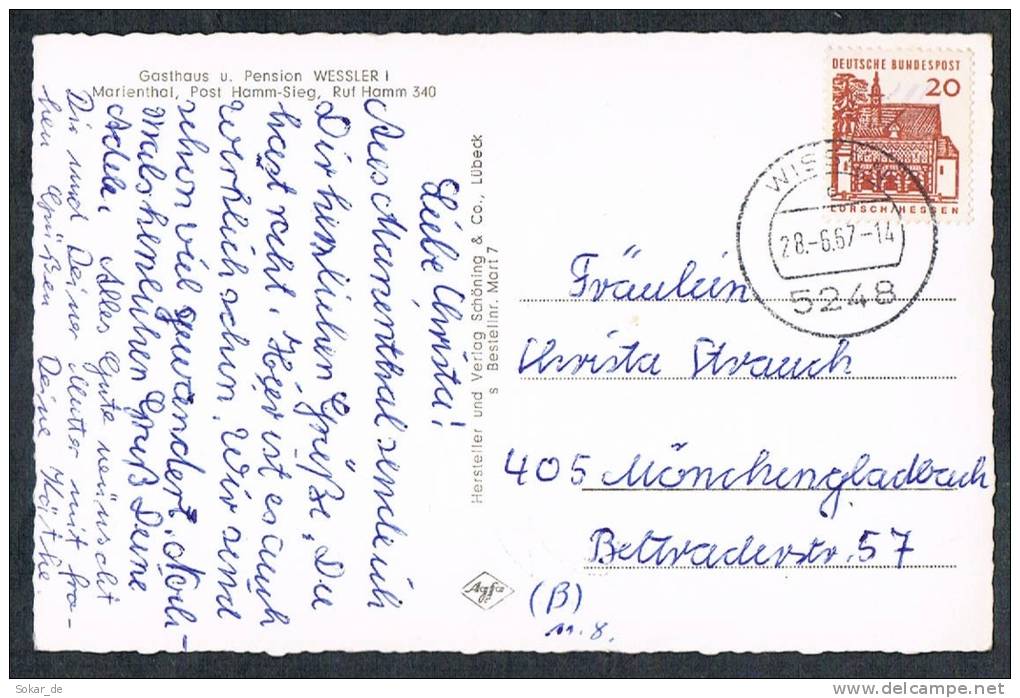 Gasthaus u. Pension WESSLER
Marienthal, Post Hamm-Sieg, Ruf Hamm 340
Liebe Christa!
Aus Marienthal sende ich
Dir herzlichen Grüße. Du
hast recht. Hier ist es auch
wirklich schön. Wir sind
schon viel gewandert. Noch-
mals herzlichen Gruß Deine
Adele. Alles Gute wünscht
Dir und Deiner Mutter mit fro-
hen Grüßen Deine Käthe.
Hersteller und Verlag Schöning & Co., Lübeck
s Bestellnr. Mart 7
Agfa
DEUTSCHE BUNDESPOST
20
LORSCH/HESSEN
WISS
28.-6.67-14
5248
Fräulein
Christa Strauch
405 Mönchengladbach
Bettraderstr. 57
(B)
11.8.
Sokar_de
delcampe.net